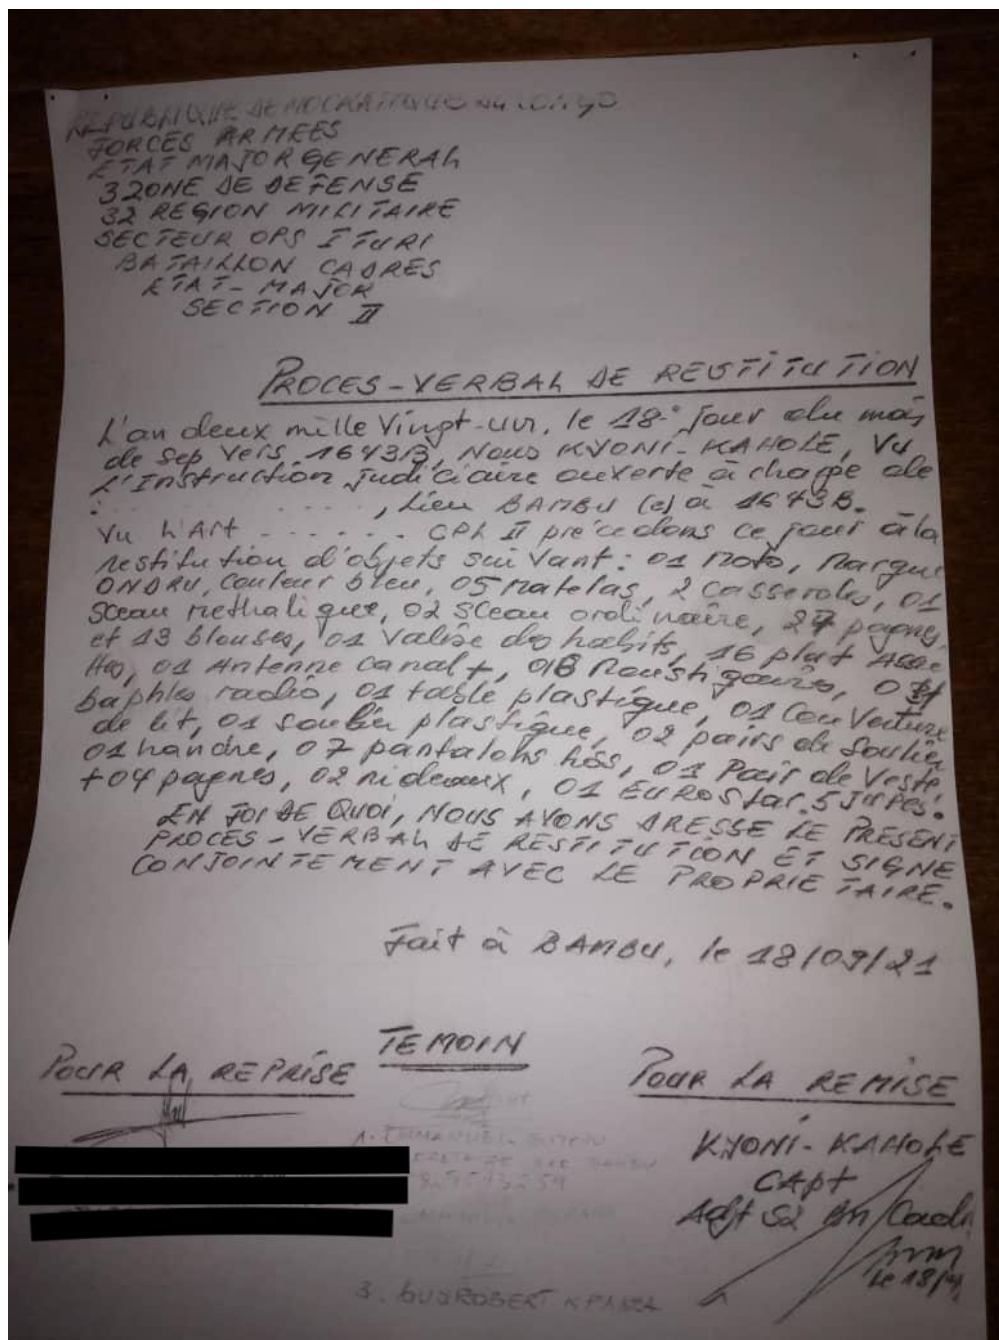 REPUBLIQUE DEMOCRATIQUE DU CONGO
FORCES ARMEES
ETAT MAJOR GENERAL
3 ZONE DE DEFENSE
32 REGION MILITAIRE
SECTEUR OPS ITURI
BATAILLON CADRES
ETAT-MAJOR
SECTION II
PROCES-VERBAL DE RESTITUTION
L'an deux mille Vingt-un, le 18° jour du mois
de Sep vers 1643B, Nous KYONI-KAHOLE, Vu
L'Instruction judiciaire ouverte à charge de
: . . . . . . . . , Lieu BAMBU (e) à 1643B.
Vu L'Art . . . . . . CPL II précedons ce jour à la
restitution d'objets suivant: 01 Moto, Marque
ONDRU, Couleur bleu, 05 Matelas, 2 Casseroles, 01
Sceau methalique, 02 Sceau ordinaire, 27 pagnes,
et 13 blouses, 01 Valise des habits, 16 plat
01 Antenne canal+,
baphles radio, 01 table plastique, 01 Couverture
de lit, 01 Soulier plastique, 02 pairs de Soulier
01 handre, 07 pantalons hos, 01 Pair de Veste
+04 pagnes, 02 rideaux, 01 EUROstar. 5 JUPES.
EN FOI DE QUOI, NOUS AVONS DRESSE LE PRESENT
PROCES-VERBAL DE RESTITUTION ET SIGNE
CONJOINTEMENT AVEC LE PROPRIETAIRE.
Fait à BAMBU, le 18/09/21
TEMOIN
POUR LA REPRISE
POUR LA REMISE
1. EMMANUEL
KYONI-KAHOLE
CAPT
Adjt S2 Bn Cadr
le 18/9
3. GUDROBERT